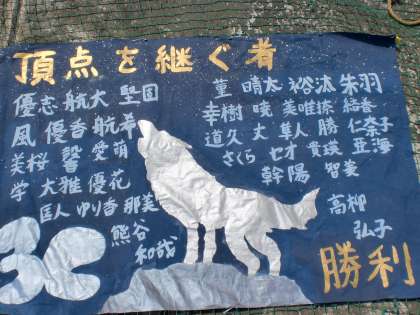 頂点を継ぐ者
優志 航大 堅固
風 優香 航希
美桜 響 愛 萌
学 大雅 優花
匠人 ゆり香 那美
熊谷
和哉
菫 晴太 裕汰 朱羽
幸樹 暁 美唯奈 絡香
道久 丈 隼人 勝 仁 奈子
さくら セオ 貴瑛 亜海
幹 陽 智美
高柳
弘子
3C
勝利